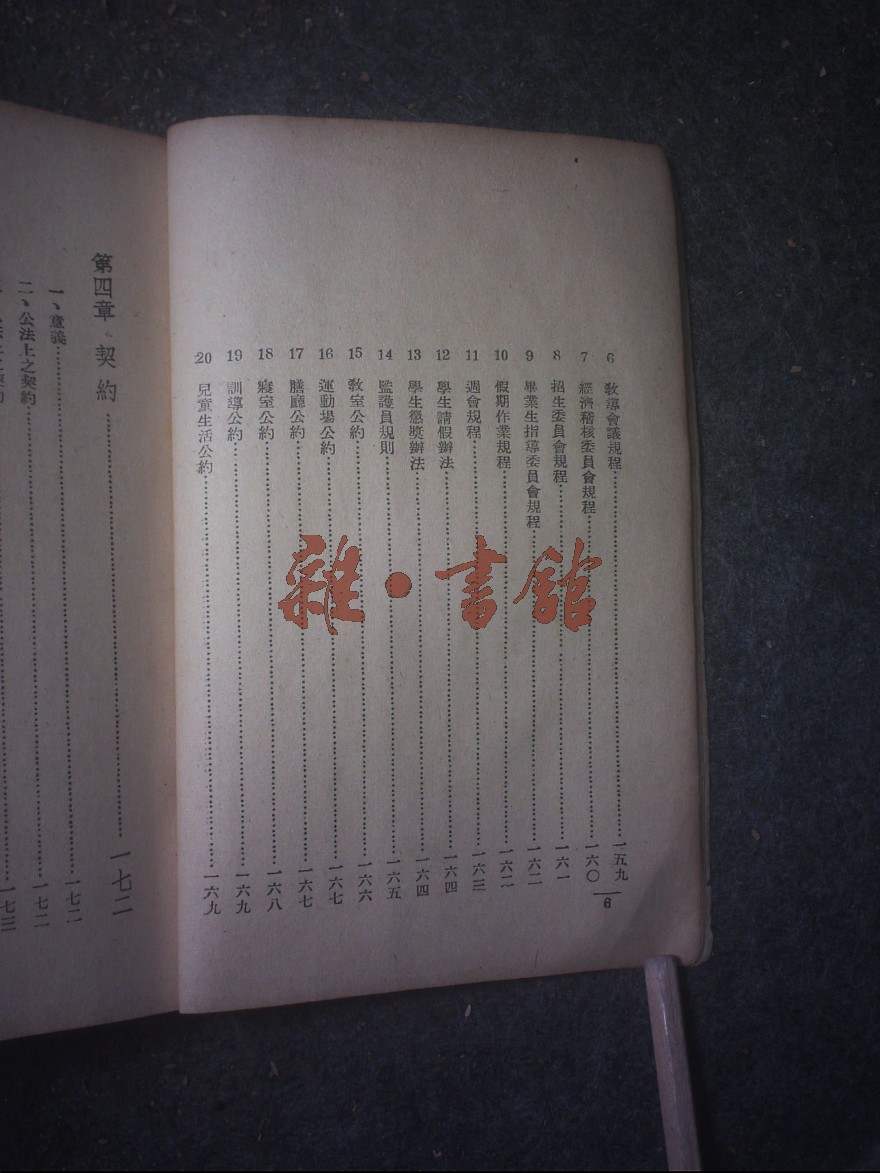 6 敎導會議規程……一五九
7 經濟稽核委員會規程……一六〇
8 招生委員會規程……一六一
9 畢業生指導委員會規程……一六二
10 假期作業規程……一六二
11 週會規程……一六三
12 學生請假辦法……一六四
13 學生懲獎辦法……一六四
14 監護員規則……一六五
15 敎室公約……一六六
16 運動場公約……一六七
17 膳廳公約……一六七
18 寢室公約……一六八
19 訓導公約……一六九
20 兒童生活公約……一六九
6
第四章 契約……一七二
一、意義……一七二
二、公法上之契約……一七二
一七三
雜·書館